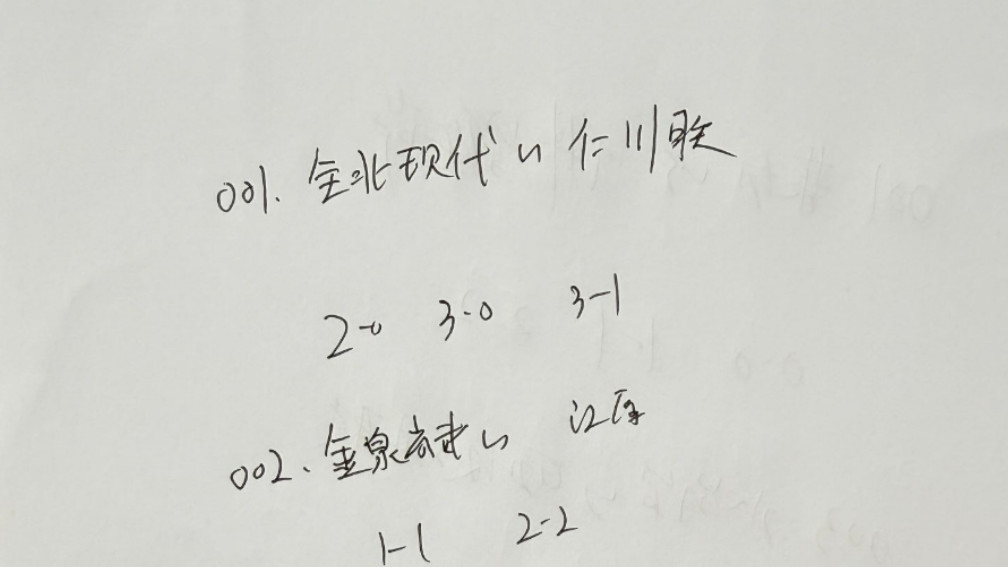 001. 全北现代 vs 仁川联
2-0 3-0 3-1
002. 金泉尚武 vs 江原
1-1 2-2